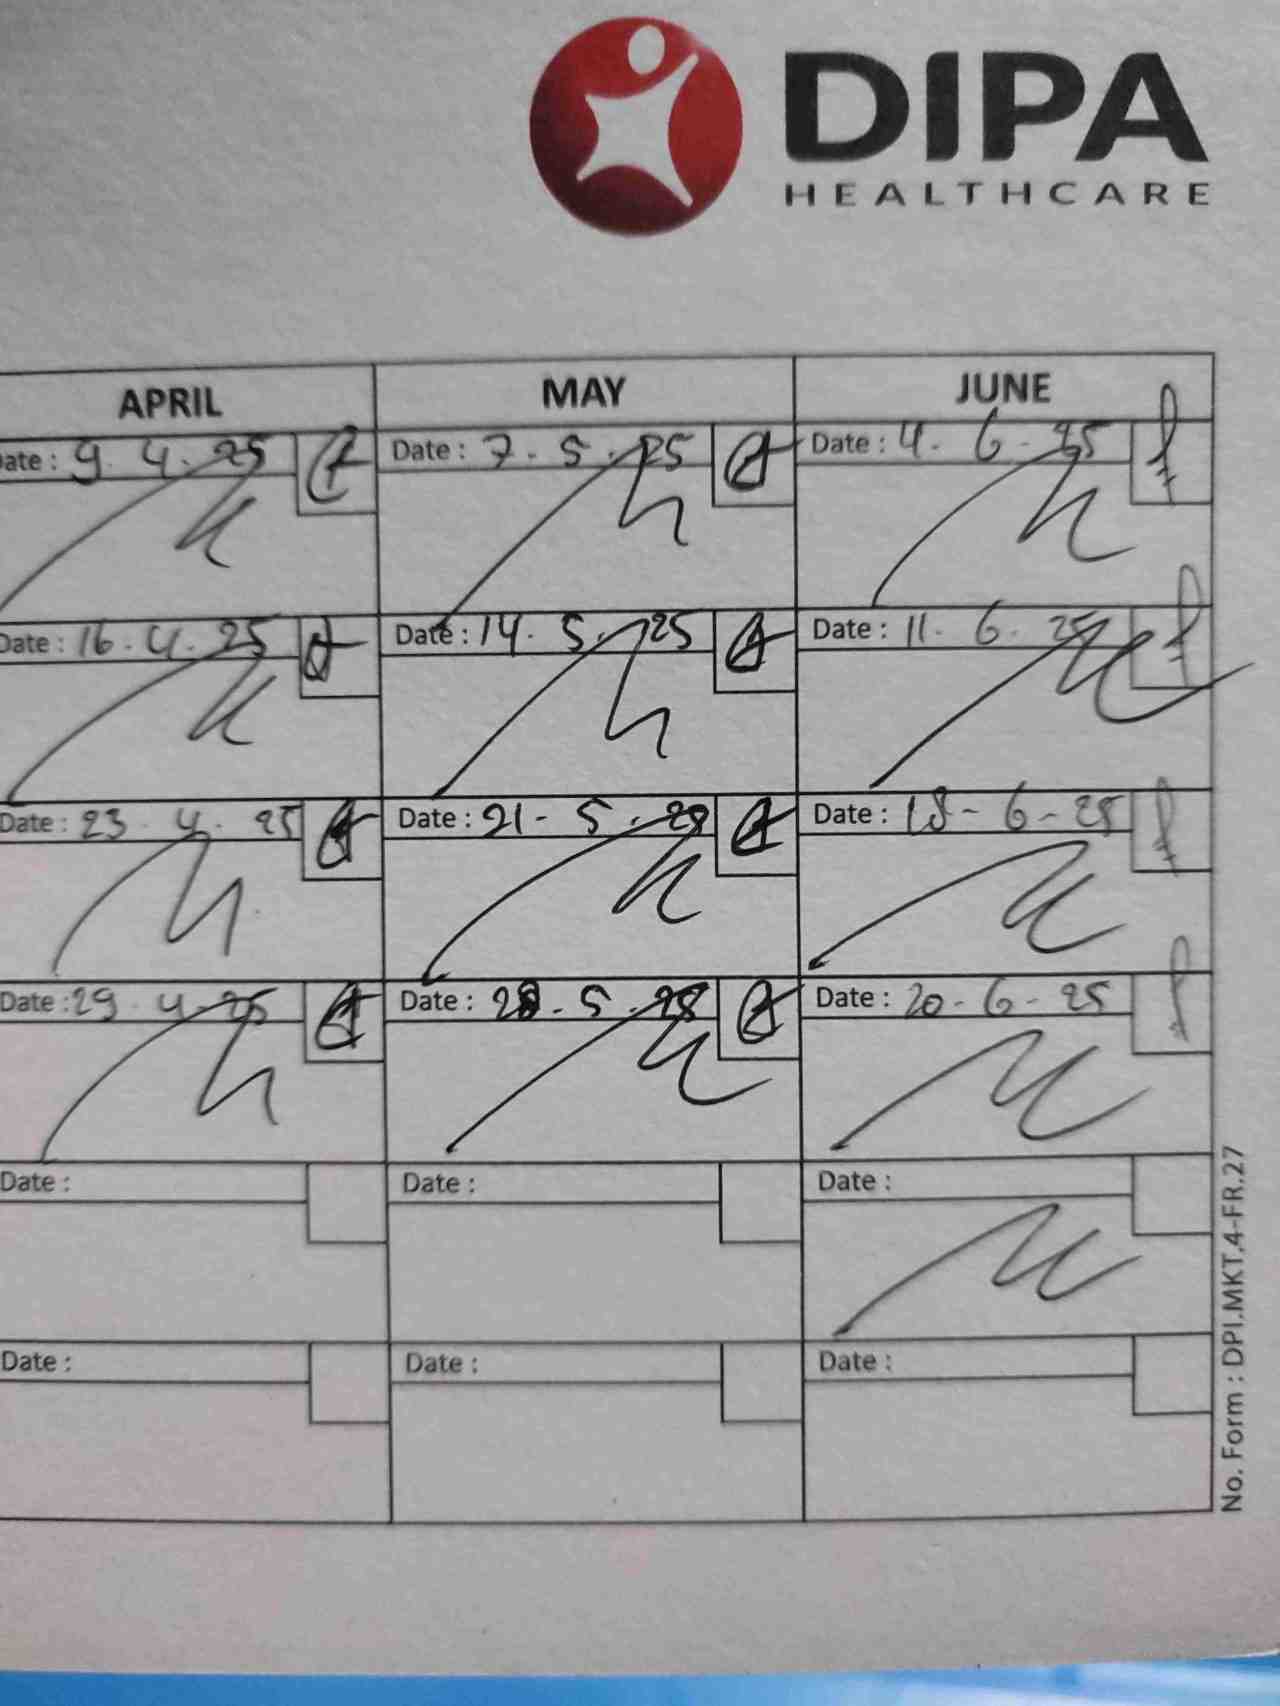 DIPA
HEALTHCARE
APRIL MAY JUNE
Date : 9. 4. 25 Date : 7. 5. 25 Date : 4. 6. 25
Date : 16. 4. 25 Date : 14. 5. 25 Date : 11. 6. 25
Date : 23. 4. 25 Date : 21 - 5. 25 Date : 18 - 6 - 25
Date : 29. 4. 25 Date : 28. 5. 25 Date : 20 - 6 - 25
Date : Date : Date :
Date : Date : Date :
No. Form : DPI.MKT.4-FR.27